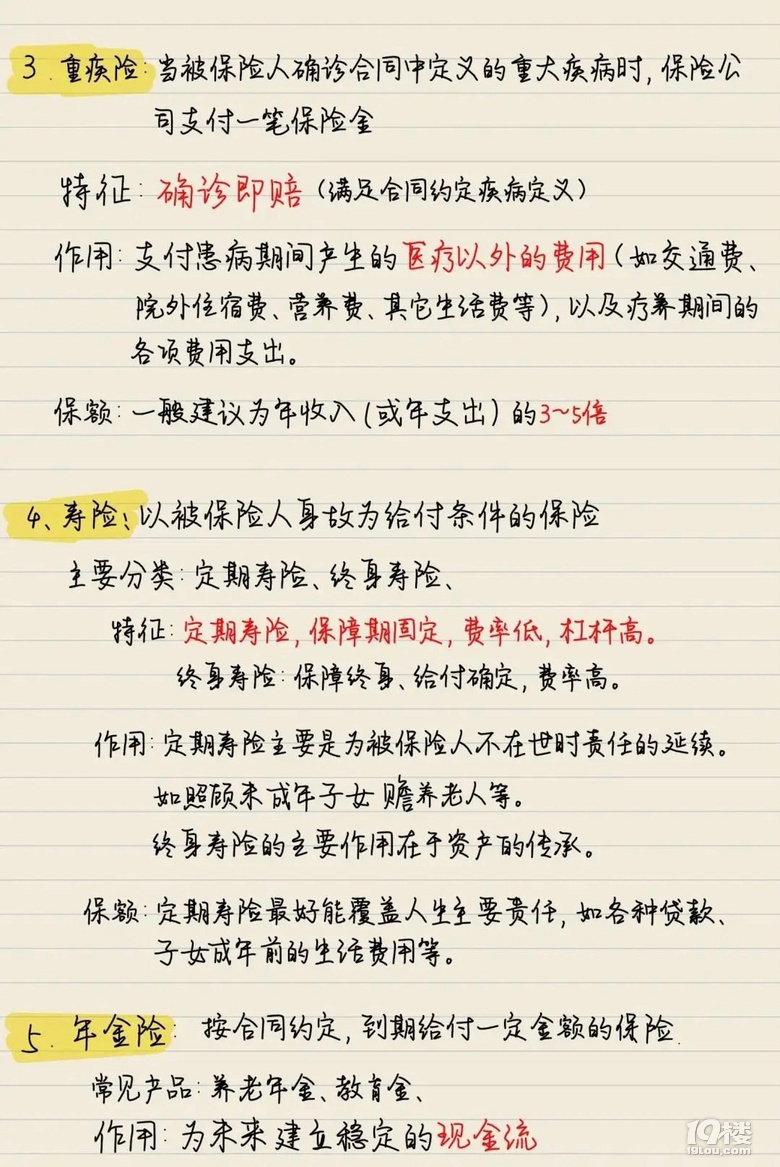 3. 重疾险: 当被保险人确诊合同中定义的重大疾病时, 保险公
司支付一笔保险金
特征: 确诊即赔 (满足合同约定疾病定义)
作用: 支付患病期间产生的医疗以外的费用 (如交通费、
院外住宿费、营养费、其它生活费等), 以及疗养期间的
各项费用支出。
保额: 一般建议为年收入 (或年支出) 的3~5倍
4、寿险: 以被保险人身故为给付条件的保险
主要分类: 定期寿险、终身寿险、
特征: 定期寿险, 保障期固定, 费率低, 杠杆高。
终身寿险: 保障终身、给付确定, 费率高。
作用: 定期寿险主要是为被保险人不在世时责任的延续。
如照顾未成年子女 赡养老人等。
终身寿险的主要作用在于资产的传承。
保额: 定期寿险最好能覆盖人生主要责任, 如各种贷款、
子女成年前的生活费用等。
5. 年金险: 按合同约定, 到期给付一定金额的保险.
常见产品: 养老年金、教育金、
作用: 为未来建立稳定的现金流
19楼
19lou.com